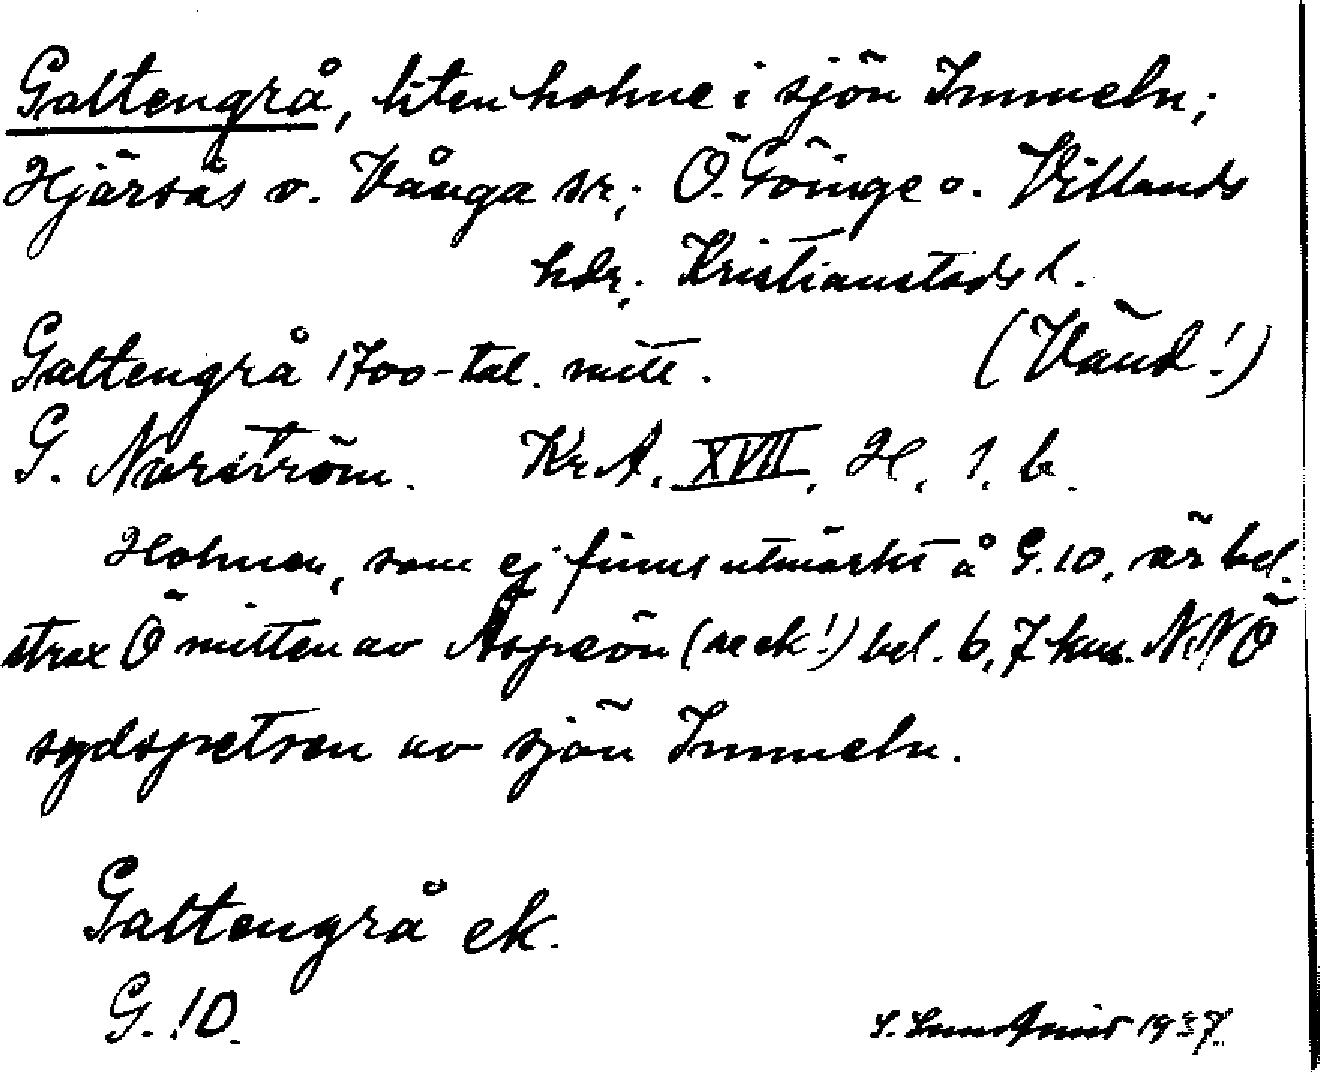 Galtengrå, liten holme i sjön Immeln;
Hjärsås o. Vånga sr; Ö. Göinge o. Villands
hdr. Kristianstads l.
Galtengrå 1700-tal. mitt. (Vänd!)
G. Norström. Kr.A. XVII, H, 1, b.
Holmen, som ej finns utmärkt å G.10, är bel.
strax Ö mitten av Aspeön (se ek!) bel. 6,7 km. NNÖ
sydspetsen av sjön Immeln.
Galtengrå ek.
G. 10.
S. Lundqvist 1937.